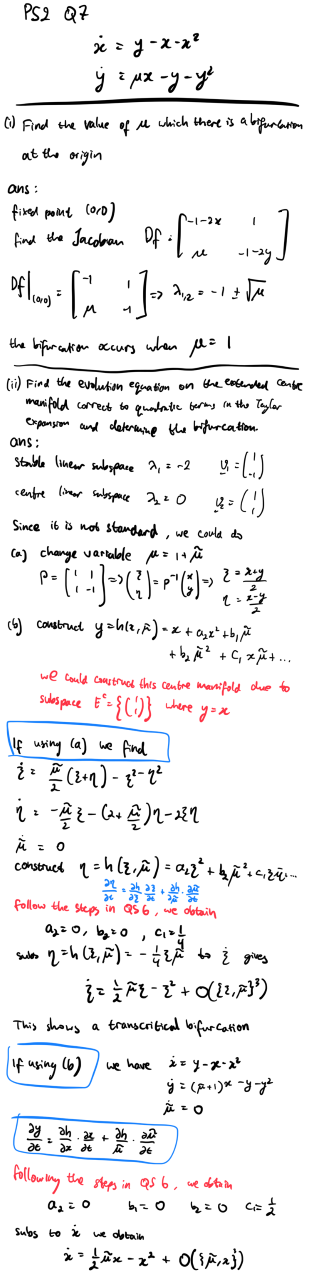 PS2 Q7
ẋ = y - x - x²
ẏ = μx - y - y²
(i) Find the value of μ which there is a bifurcation
at the origin
ans:
fixed point (0,0)
find the Jacobian Df = [-1-2x 1
μ -1-2y]
Df|(0,0) = [-1 1
μ -1] ⇒ λ₁,₂ = -1 ± √μ
the bifurcation occurs when μ = 1
(ii) Find the evolution equation on the extended centre
manifold correct to quadratic terms in the Taylor
expansion and determine the bifurcation.
ans:
stable linear subspace λ₁ = -2 v₁ = (1 -1)
centre linear subspace λ₂ = 0 v₂ = (1 1)
Since it is not standard, we could do
(a) change variable μ = 1 + μ̃
P = [1 1
1 -1] ⇒ (ξ η) = P⁻¹(x y) ⇒ ξ = (x+y)/2
η = (x-y)/2
(b) construct y = h(x, μ̃) = x + a₂x² + b₁μ̃
+ b₂μ̃² + c₁xμ̃ + ...
we could construct this centre manifold due to
subspace Eᶜ = {(1 1)} where y = x
If using (a) we find
ξ̇ = μ̃/2 (ξ+η) - ξ² - η²
η̇ = -μ̃/2 ξ - (2 + μ̃/2)η - 2ξη
μ̃̇ = 0
construct η = h(ξ, μ̃) = a₂ξ² + b₂μ̃² + c₁ξμ̃...
∂η/∂t = ∂h/∂ξ · ∂ξ/∂t + ∂h/∂μ̃ · ∂μ̃/∂t
follow the steps in QS6, we obtain
a₂ = 0, b₂ = 0, c₁ = 1/4
subs η = h(ξ, μ̃) = -1/4 ξμ̃ to ξ̇ gives
ξ̇ = 1/2 μ̃ξ - ξ² + O({ξ, μ̃}³)
This shows a transcritical bifurcation
If using (b) we have ẋ = y - x - x²
ẏ = (μ̃+1)x - y - y²
μ̃̇ = 0
∂y/∂t = ∂h/∂x · ∂x/∂t + ∂h/μ̃ · ∂μ̃/∂t
following the steps in QS6, we obtain
a₂ = 0 b₁ = 0 b₂ = 0 c₁ = 1/2
subs to ẋ we obtain
ẋ = 1/2 μ̃x - x² + O({μ̃, x}³)